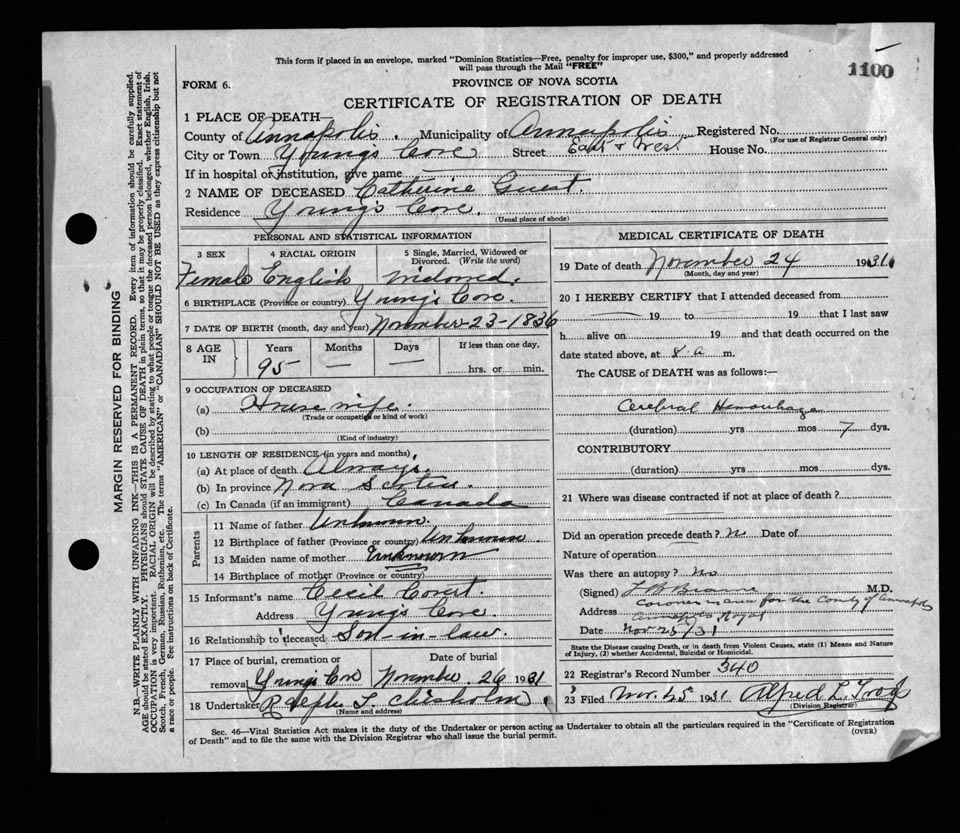 This form if placed in an envelope, marked "Dominion Statistics—Free, penalty for improper use, $300," and properly addressed
will pass through the Mail "FREE"
1100
FORM 6.
PROVINCE OF NOVA SCOTIA
CERTIFICATE OF REGISTRATION OF DEATH
1 PLACE OF DEATH—
County of Annapolis. Municipality of Annapolis Registered No.
(For use of Registrar General only)
City or Town Young's Cove Street East & West House No.
If in hospital or institution, give name
2 NAME OF DECEASED Catherine Guest.
Residence Young's Cove.
(Usual place of abode)
PERSONAL AND STATISTICAL INFORMATION
3 SEX 4 RACIAL ORIGIN 5 Single, Married, Widowed or
Divorced. (Write the word)
Female English Widowed.
6 BIRTHPLACE (Province or country) Young's Cove.
7 DATE OF BIRTH (month, day and year) November-23-1836
8 AGE IN Years Months Days If less than one day,
95 — — hrs. or min.
9 OCCUPATION OF DECEASED
(a) Housewife.
(Trade or occupation or kind of work)
(b)
(Kind of industry)
10 LENGTH OF RESIDENCE (in years and months)
(a) At place of death Always.
(b) In province Nova Scotia
(c) In Canada (if an immigrant) Canada
Parents
11 Name of father Unknown.
12 Birthplace of father (Province or country) Unknown
13 Maiden name of mother Unknown
14 Birthplace of mother (Province or country)
15 Informant's name Cecil Covert.
Address Young's Cove.
16 Relationship to deceased Son-in-law.
17 Place of burial, cremation or Date of burial
removal Young's Cove November. 26 1931
18 Undertaker L. Chisholm
(Name and address)
MEDICAL CERTIFICATE OF DEATH
19 Date of death November 24 1931.
(Month, day and year)
20 I HEREBY CERTIFY that I attended deceased from
19 to 19 that I last saw
h alive on 19 and that death occurred on the
date stated above, at 8. a m.
The CAUSE of DEATH was as follows:—
Cerebral Hemorrhage
(duration) yrs mos 7 dys.
CONTRIBUTORY
(duration) yrs mos dys.
21 Where was disease contracted if not at place of death?
Did an operation precede death? No Date of
Nature of operation
Was there an autopsy? No
(Signed) L B Braine M.D.
Coroner in and for the County of Annapolis
Address Annapolis Royal
Date Nov 25/31
State the Disease causing Death, or in death from Violent Causes, state (1) Means and Nature
of Injury, (2) whether Accidental, Suicidal or Homicidal.
22 Registrar's Record Number 340
23 Filed Nov. 25 1931 Alfred L. Troop
(Division Registrar)
Sec. 46—Vital Statistics Act makes it the duty of the Undertaker or person acting as Undertaker to obtain all the particulars required in the "Certificate of Registration
of Death" and to file the same with the Division Registrar who shall issue the burial permit.
(OVER)
MARGIN RESERVED FOR BINDING
N.B.—WRITE PLAINLY WITH UNFADING INK—THIS IS A PERMANENT RECORD. Every item of information should be carefully supplied.
AGE should be stated EXACTLY. PHYSICIANS should STATE CAUSE OF DEATH in plain terms, so that it may be properly classified. Exact statement of
OCCUPATION is very important. RACIAL ORIGIN will be described by stating to what people or tongue the deceased person belonged, whether English, Irish,
Scotch, French, German, Russian, Ruthenian, etc. The terms "AMERICAN" or "CANADIAN" SHOULD NOT BE USED as they express citizenship but not
a race or people. See instructions on back of Certificate.